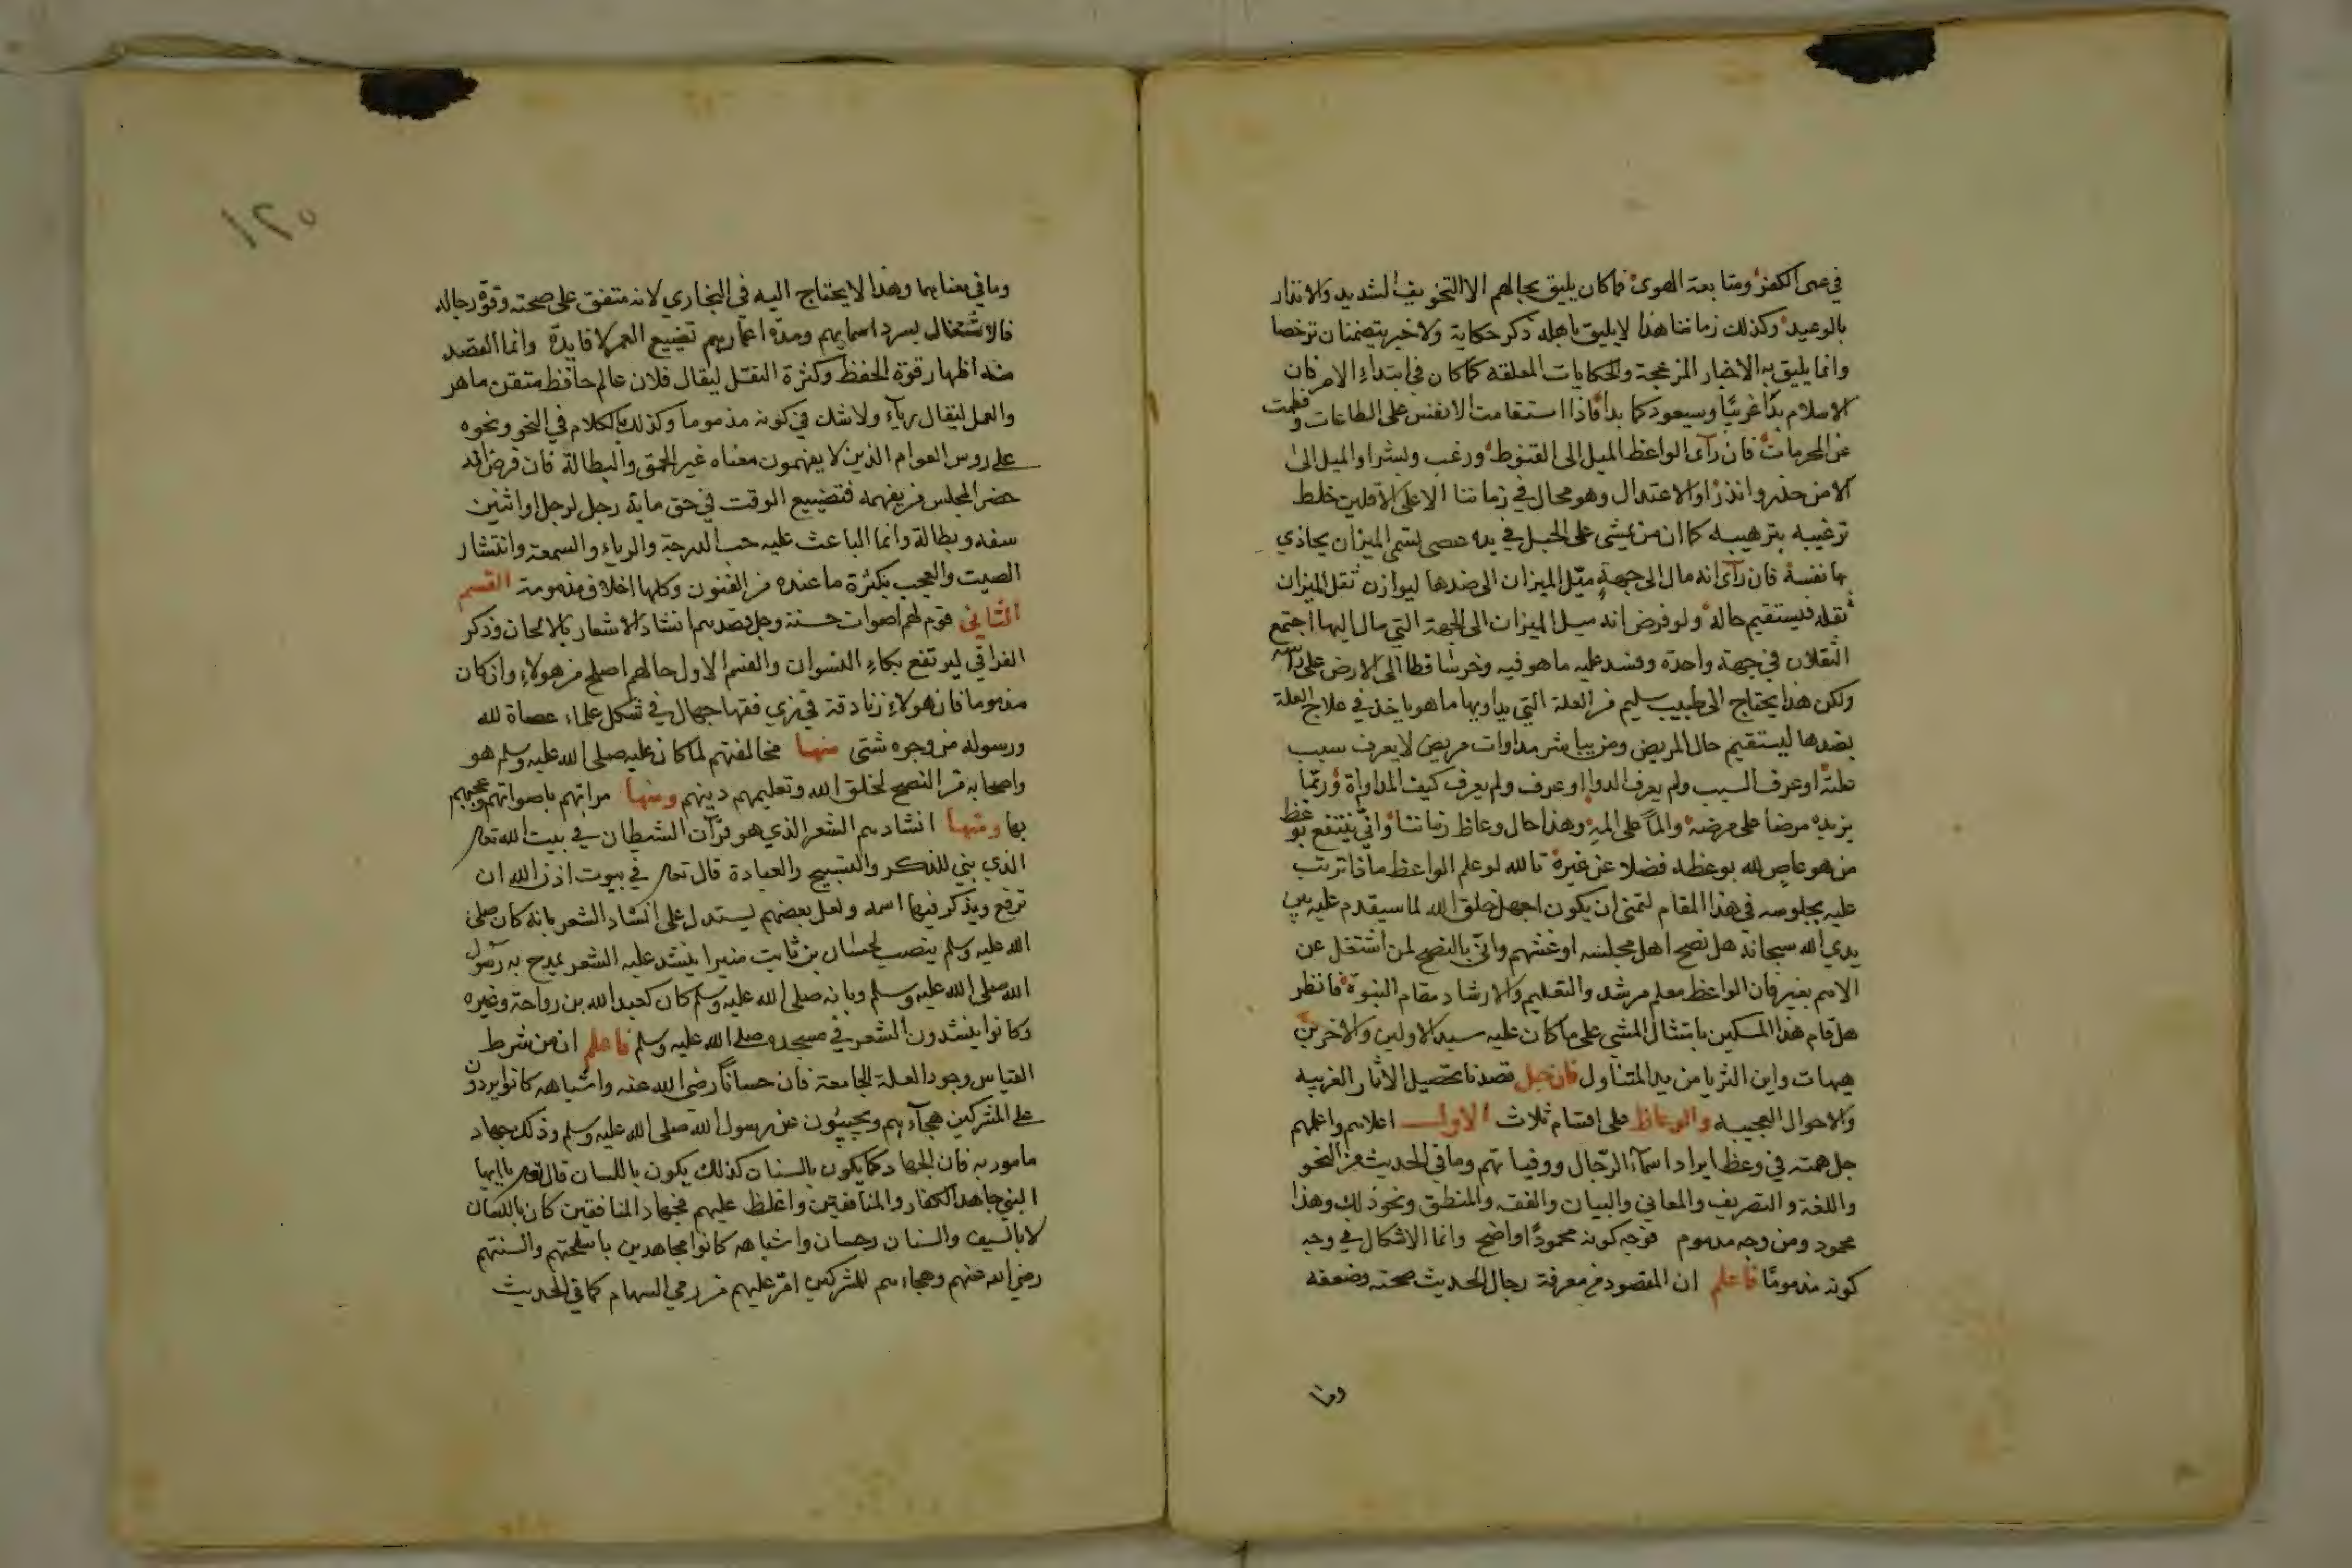 في عمى الكفر ومتابعة الهوى فما كان يليق بحالهم الا التخويف الشديد والانذار
بالوعيد وكذلك زماننا هذا لا يليق باهله ذكر حكاية ولا خبر يتضمنان ترخصا
وانما يليق به الاخبار المزعجة والحكايات المعلقه كما كان في ابتداء الامر فان
الاسلام بدا غريبا وسيعود كما بدا فاذا استقامت الانفس على الطاعات وفطمت
عن المحرمات فان رآى الواعظ الميل الى القنوط ورغب وبشر او الميل الى
الامن حذر وانذر او الاعتدال وهو محال في زماننا الا على الاقلين خلط
ترغيبه بترهيبه كما ان من يمشي على الحبل في يده عصى تسمى الميزان يحاذي
بها نفسه فان رآى انه مال الى جهة ميّل الميزان الى ضدها ليوازن ثقل الميزان
ثقله فيستقيم حاله ولو فرض انه ميل الميزان الى الجهة التي مال اليها اجتمع
الثقلان في جهة واحدة وفسد عليه ما هو فيه وخر ساقطا الى الارض على راسه
ولكن هذا يحتاج الى طبيب سليم من العلة التي يداويها ما هو ياخذ في علاج العلة
بضدها ليستقيم حال المريض ومن يباشر مداوات مريض لا يعرف سبب
علته او عرف السبب ولم يعرف الدوا او عرف ولم يعرف كيف المداواة وربما
يزيده مرضا على مرضه والما على المه وهذا حال وعاظ زماننا وانى ينتفع بوعظ
من هو عاصٍ لله بوعظه فضلا عن غيره تالله لو علم الواعظ ماذا ترتب
عليه بجلوسه في هذا المقام لتمنى ان يكون اجهل خلق الله لما سيقدم عليه بين
يدي الله سبحانه هل نصح اهل مجلسه او غشهم وانى بالنصح لمن اشتغل عن
الاهم بغير فان الواعظ معلم مرشد والتعليم والارشاد مقام النبوة فانظر
هل قام هذا المسكين بامتثال المشي على ما كان عليه سيد الاولين والاخرين
هيهات واين الثريا من يد المتناول فان قيل قصدنا تحصيل الآثار الغريبه
والاحوال العجيبه والوعاظ على اقسام ثلاث الاول اعلاهم واعلمهم
جل همته في وعظ ايراد اسماء الرجال ووفياتهم وما في الحديث من النحو
واللغة والتصريف والمعاني والبيان والفقه والمنطق ونحو ذلك وهذا
محمود ومن وجه مذموم فوجه كونه محمودًا واضح وانما الاشكال في وجه
كونه مذمومًا فاعلم ان المقصود من معرفة رجال الحديث صحته وضعفه
وما
١٢٥
وما في معناهما وهذا لا يحتاج اليه في البخاري لانه متفق على صحته وقوة رجاله
فالاشتغال بسرد اسمايهم ومدة اعمارهم تضييع العمر لا فايدة وانما القصد
منه اظهار قوة الحفظ وكثرة النقل ليقال فلان عالم حافظ متقن ماهر
والعمل ليقال رياء ولا شك في كونه مذموما وكذلك الكلام في النحو ونحوه
على روس العوام الذين لا يفهمون معناه غير الحمق والبطالة فان فرض انه
حضر المجلس من يفهمه فتضييع الوقت في حق ماية رجل لرجل او اثنين
سفه وبطالة وانما الباعث عليه حب الدرجة والرياء والسمعة وانتشار
الصيت والعجب بكثرة ما عنده من الفنون وكلها اخلاق مذمومة القسم
الثاني قوم لهم اصوات حسنة وجل قصدهم انشاد الاشعار بالالحان وذكر
الفراق ليرتفع بكاء النسوان والقسم الاول حالهم اصلح من هولاء وان كان
مذموما فان هولاء زنادقة في زي فقها جهال في شكل علماء عصاة لله
ورسوله من وجوه شتى منها مخالفتهم لما كان عليه صلى الله عليه وسلم هو
واصحابه من النصح لخلق الله وتعليمهم دينهم ومنها مراتهم باصواتهم وعجبهم
بها ومنها انشادهم الشعر الذي هو قرآن الشيطان في بيت الله تعالى
الذي بني للذكر والتسبيح والعبادة قال تعالى في بيوت اذن الله ان
ترفع ويذكر فيها اسمه ولعل بعضهم يستدل على انشاد الشعر بانه كان صلى
الله عليه وسلم ينصب لحسان بن ثابت منبرا ينشد عليه الشعر يمدح به رسول
الله صلى الله عليه وسلم وبانه صلى الله عليه وسلم كان كعبد الله بن رواحة وغيره
وكانوا ينشدون الشعر في مسجده صلى الله عليه وسلم فاعلم ان من شرط
القياس وجود العلة الجامعة فان حسانًا رضي الله عنه واشباهه كانوا يردون
على المشركين هجآءهم ويجيبون عن رسول الله صلى الله عليه وسلم وذلك جهاد
مامور به فان الجهاد كما يكون بالسنان كذلك يكون باللسان قال تعالى يا ايها
النبي جاهد الكفار والمنافقين واغلظ عليهم فجهاد المنافقين كان باللسان
لا بالسيف والسنان وحسان واشباهه كانوا مجاهدين باسلحتهم والسنتهم
رضي الله عنهم وهجاءهم للمشركين امرّ عليهم من رمي السهام كما في الحديث